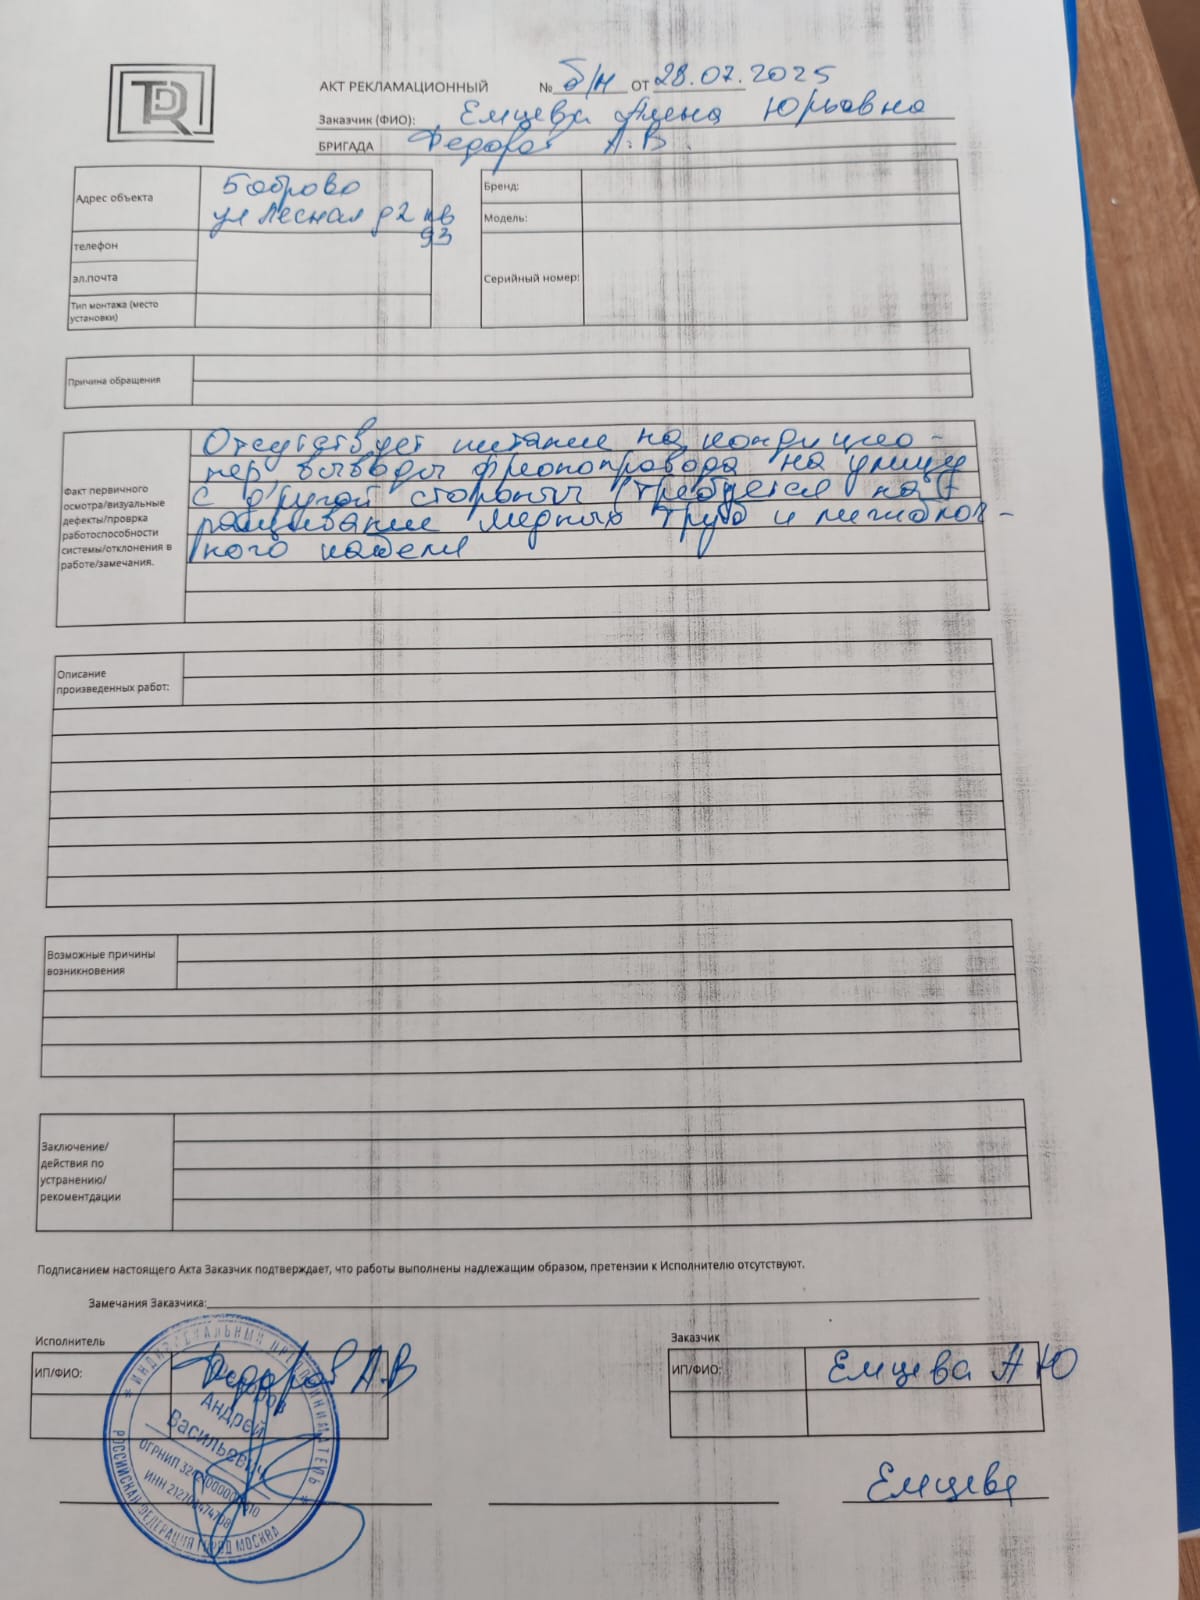 TDR
АКТ РЕКЛАМАЦИОННЫЙ № б/н от 28.07.2025
Заказчик (ФИО): Емцева Алена Юрьевна
БРИГАДА Федоров А.В.
Адрес объекта Боброво
ул Лесная д2 кв
93
телефон
эл.почта
Тип монтажа (место
установки)
Бренд:
Модель:
Серийный номер:
Причина обращения
Факт первичного
осмотра/визуальные
дефекты/проврка
работоспособности
системы/отклонения в
работе/замечания.
Отсутствует питание на кондицио-
нер, выводы фреонопровода на улицу
с другой стороны (требуется на-
ращивание медных труб и
кабеля
Описание
произведенных работ:
Возможные причины
возникновения
Заключение/
действия по
устранению/
рекоментдации
Подписанием настоящего Акта Заказчик подтверждает, что работы выполнены надлежащим образом, претензии к Исполнителю отсутствуют.
Замечания Заказчика:
Исполнитель
ИП/ФИО: Федоров А.В
Заказчик
ИП/ФИО: Емцева А Ю
Емцева
ИНДИВИДУАЛЬНЫЙ ПРЕДПРИНИМАТЕЛЬ
Федоров
Андрей
Васильевич
ОГРНИП
ИНН
РОССИЙСКАЯ ФЕДЕРАЦИЯ ГОРОД МОСКВА